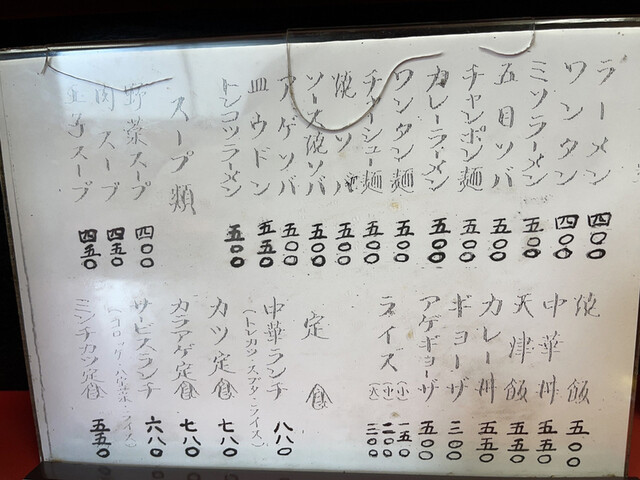 ラーメン 四〇〇
ワンタン 四〇〇
ミソラーメン 五〇〇
五目ソバ 五〇〇
チャンポン麺 五〇〇
カレーラーメン 五〇〇
ワンタン麺 五〇〇
チャーシュー麺 五〇〇
焼ソバ 五〇〇
ソース焼ソバ 五〇〇
アゲソバ 五〇〇
皿ウドン 五五〇
トンコツラーメン 五〇〇
スープ類
野菜スープ 四〇〇
肉スープ 四五〇
玉子スープ 四五〇
焼飯 五〇〇
中華丼 五五〇
天津飯 五五〇
カレー丼 五五〇
ギョーザ 三〇〇
アゲギョーザ 五〇〇
ライス (小) 一五〇
(中) 二〇〇
(大) 三〇〇
定食
中華ランチ 八八〇
(トンカツ・スブタ・ライス)
カツ定食 七八〇
カラアゲ定食 七八〇
サービスランチ 六八〇
(コロッケ・八宝菜・ライス)
ミンチカツ定食 五五〇